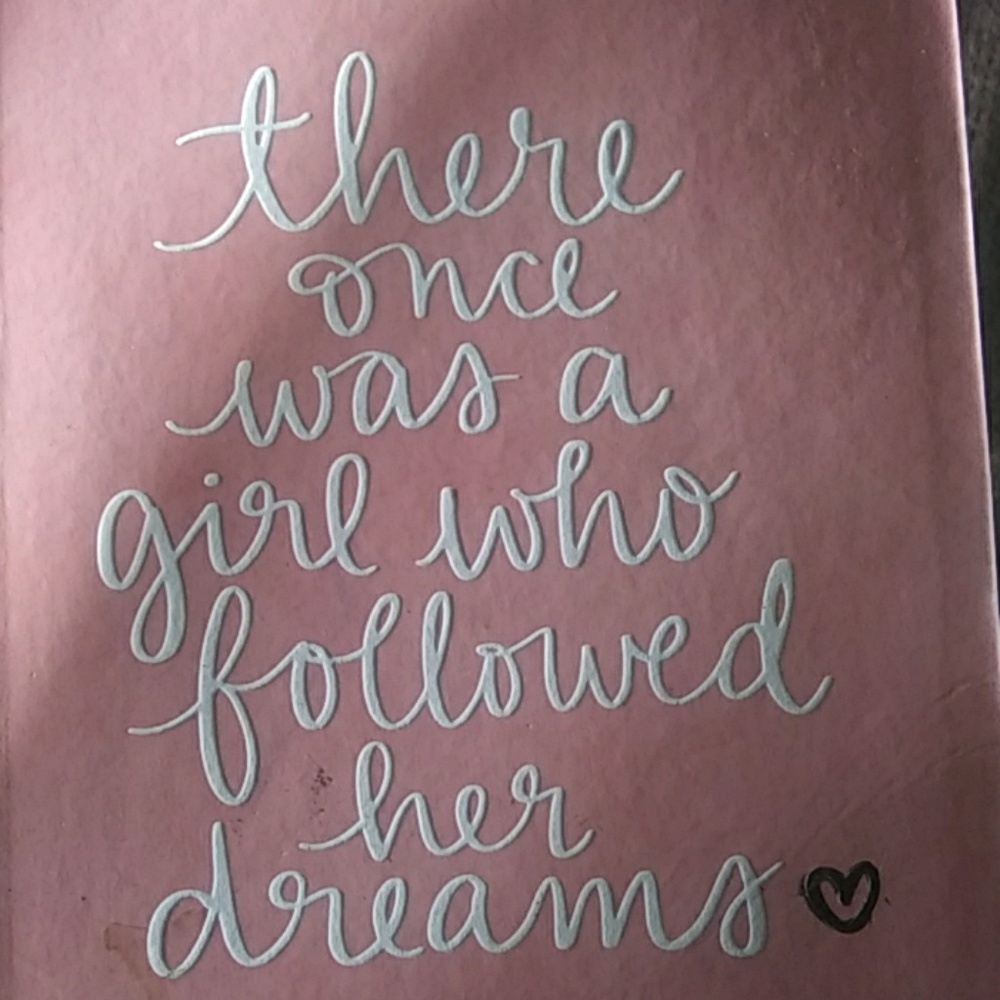 there
once
was a
girl who
followed
her
dreams